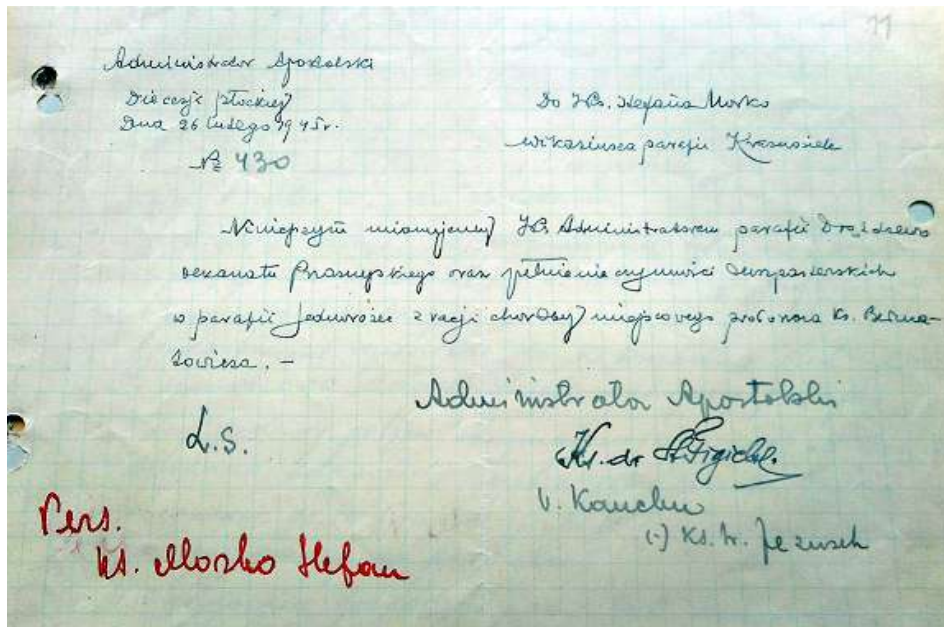 11
Administrator Apostolski
Diecezji Płockiej
Dnia 26 lutego 1945r.
№ 430
Do Ks. Stefana Morko
wikariusza parafii Krasnosielc
Niniejszym mianujemy Ks. Administratorem parafii Drążdżewo
dekanatu Przasnyskiego oraz pełnienie czynności duszpasterskich
w parafii Jednorożec z racji choroby miejscowego proboszcza Ks. Berna-
towicza. —
Administrator Apostolski
L.S.
Ks. dr St. Figielski
V. Kanclerz
(-) Ks. W. Jezusek
Pers.
ks. Morko Stefan